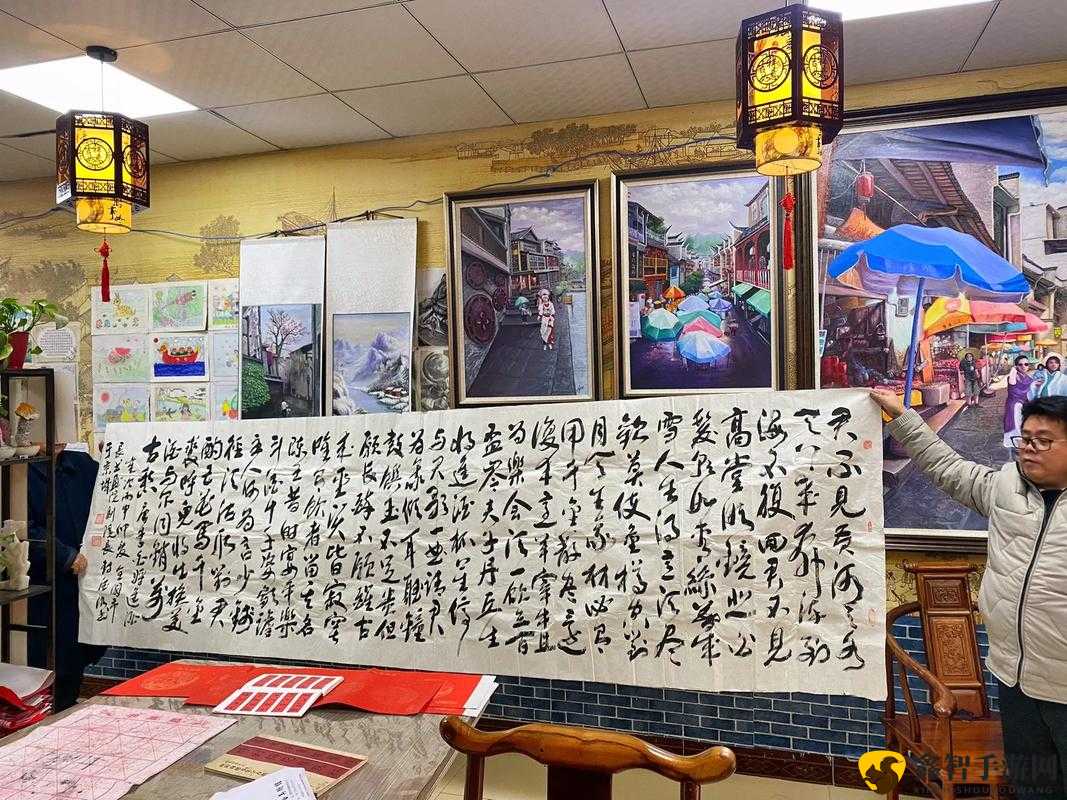 君不见黄河之水
天上来奔流到
海不复回君不见
高堂明镜悲白
髮朝如青絲暮成
雪人生得意须尽
歡莫使金樽空對
月天生我材必有
用千金散尽還
復来烹羊宰牛且
为樂会須一飲三百
盃岑夫子丹丘生
将進酒杯莫停
与君歌一曲請君
为我倾耳聽鐘
鼓饌玉不足贵但
願長醉不願醒古
来圣贤皆寂寞
唯有飲者留其名
陈王昔时宴平樂
斗酒十千恣歡謔
主人何为言少錢
徑須沽取對君
酌五花馬千金
裘呼兒将出換美
酒与尔同銷萬
古愁唐李白将進酒
手游网